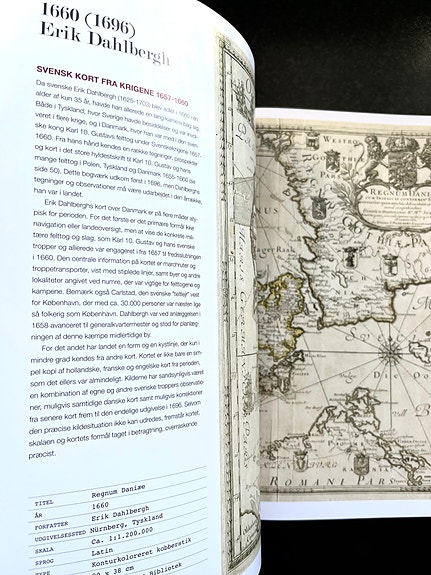 1660 (1696)
Erik Dahlbergh
SVENSK KORT FRA KRIGENE 1657-1660
Da svenske Erik Dahlbergh (1625-1703) blev adlet i 1660 i en
alder af kun 35 år, havde han allerede en lang karriere bag sig.
Både i Tyskland, hvor Sverige havde besiddelser og var invol-
veret i flere krige, og i Danmark, hvor han var med i den sven-
ske kong Karl 10. Gustavs felttog under Svenskekrigene 1657-
1660. Fra hans hånd kendes en række tegninger, prospekter
og kort i det store hyldestskrift til Karl 10. Gustav og hans
mange felttog i Polen, Tyskland og Danmark 1655-1660 (se
side 50). Dette bogværk udkom først i 1696, men Dahlberghs
tegninger og observationer må være udarbejdet i den årrække,
han var i landet.
Erik Dahlberghs kort over Danmark er på flere måder aty-
pisk for perioden. For det første er det primære formål ikke
navigation eller landeoversigt, men at vise de konkrete mili-
tære felttog og slag, som Karl 10. Gustav og hans svenske
tropper og allierede var engageret i fra 1657 til fredsslutningen
i 1660. Den centrale information på kortet er marchruter og
troppetransporter, vist med stiplede linjer, samt byer og andre
lokaliteter angivet ved numre, der var vigtige for felttogene og
kampene. Bemærk også Carlstad, den svenske "teltlejr" vest
for København, der med ca. 30.000 personer var næsten lige
så folkerig som København. Dahlbergh var ved anlæggelsen i
1658 avanceret til generalkvartermester og stod for planlæg-
ningen af denne kæmpe midlertidige by.
For det andet har landet en form og en kystlinje, der kun i
mindre grad kendes fra andre kort. Kortet er ikke bare en sim-
pel kopi af hollandske, franske og engelske kort fra perioden,
som det ellers var almindeligt. Kilderne har sandsynligvis været
en kombination af egne og andre svenske troppers observatio-
ner, muligvis samtidige danske kort samt muligvis korrektioner
fra senere kort frem til den endelige udgivelse i 1696. Selvom
den præcise kildesituation ikke kan udredes, fremstår kortet,
skalaen og kortets formål taget i betragtning, overraskende
præcist.
TITEL Regnum Daniæ
ÅR 1660
FORFATTER Erik Dahlbergh
UDGIVELSESSTED Nürnberg, Tyskland
SKALA Ca. 1:1.200.000
SPROG Latin
TYPE Konturkoloreret kobberstik
x 38 cm
Bibliotek
WESTRO
REGNUM DANI
Jager Raak
ROMANI PARS